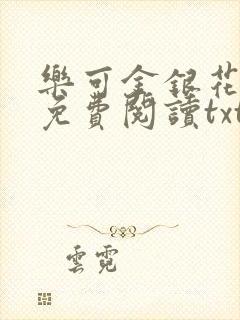 樂可金銀花
免費閱讀txt
雲霓